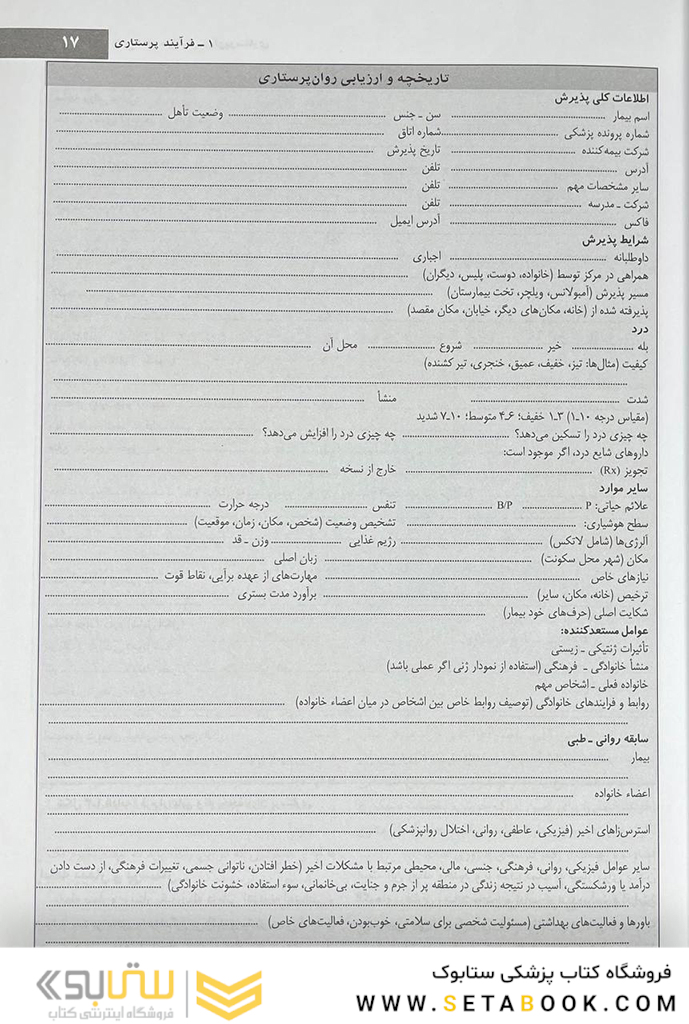 ۱ ـ فرآیند پرستاری ۱۷
تاریخچه و ارزیابی روان‌پرستاری
اطلاعات کلی پذیرش
اسم بیمار ........ سن ـ جنس ........ وضعیت تأهل ........
شماره پرونده پزشکی ........ شماره اتاق ........
شرکت بیمه‌کننده ........ تاریخ پذیرش ........
آدرس ........ تلفن ........
سایر مشخصات مهم ........ تلفن ........
شرکت ـ مدرسه ........ تلفن ........
فاکس ........ آدرس ایمیل ........
شرایط پذیرش
داوطلبانه ........ اجباری ........
همراهی در مرکز توسط (خانواده، دوست، پلیس، دیگران) ........
مسیر پذیرش (آمبولانس، ویلچر، تخت بیمارستان) ........
پذیرفته شده از (خانه، مکان‌های دیگر، خیابان، مکان مقصد) ........
درد
بله ........ خیر ........ شروع ........ محل آن ........
کیفیت (مثال‌ها: تیز، خفیف، عمیق، خنجری، تیر کشنده)
........
شدت ........ منشأ ........
(مقیاس درجه ۱۰ـ۱) ۳ـ۱ خفیف؛ ۶ـ۴ متوسط؛ ۱۰ـ۷ شدید
چه چیزی درد را تسکین می‌دهد؟ ........ چه چیزی درد را افزایش می‌دهد؟ ........
داروهای شایع درد، اگر موجود است:
تجویز (Rx) ........ خارج از نسخه ........
سایر موارد
علائم حیاتی: P ........ B/P ........ تنفس ........ درجه حرارت ........
سطح هوشیاری: ........ تشخیص وضعیت (شخص، مکان، زمان، موقعیت) ........
آلرژی‌ها (شامل لاتکس) ........ رژیم غذایی ........ وزن ـ قد ........
مکان (شهر محل سکونت) ........ زبان اصلی ........
نیازهای خاص ........ مهارت‌های از عهده برآیی، نقاط قوت ........
ترخیص (خانه، مکان، سایر) ........ برآورد مدت بستری ........
شکایت اصلی (حرف‌های خود بیمار) ........
عوامل مستعدکننده:
تأثیرات ژنتیکی ـ زیستی
منشأ خانوادگی ـ فرهنگی (استفاده از نمودار ژنی اگر عملی باشد)
خانواده فعلی ـ اشخاص مهم
روابط و فرایندهای خانوادگی (توصیف روابط خاص بین اشخاص در میان اعضاء خانواده) ........
........
سابقه روانی ـ طبی
بیمار ........
........
اعضاء خانواده ........
........
استرس‌زاهای اخیر (فیزیکی، عاطفی، روانی، اختلال روانپزشکی) ........
........
سایر عوامل فیزیکی، روانی، فرهنگی، جنسی، مالی، محیطی مرتبط با مشکلات اخیر (خطر افتادن، ناتوانی جسمی، تغییرات فرهنگی، از دست دادن
درآمد یا ورشکستگی، آسیب در نتیجه زندگی در منطقه پر از جرم و جنایت، بی‌خانمانی، سوء استفاده، خشونت خانوادگی) ........
........
باورها و فعالیت‌های بهداشتی (مسئولیت شخصی برای سلامتی، خوب‌بودن، فعالیت‌های خاص) ........
........
فروشگاه کتاب پزشکی ستابوک
WWW.SETABOOK.COM
ستابوک
فروشگاه اینترنتی کتاب